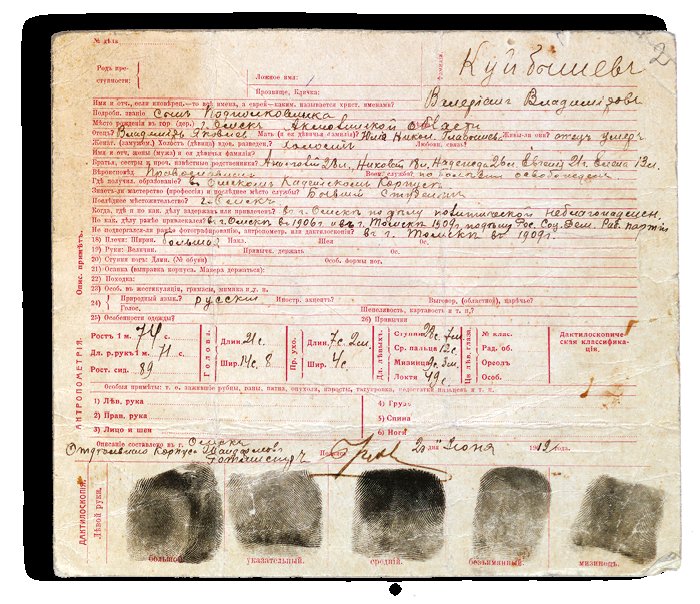 № дѣла
2
Родъ пре-
ступности:
Ложное имя:
Прозвище, Кличка:
Фамилія:
Куйбышевъ
Имя и отч., если иновѣрец.—то всѣ имена, а еврея—каким. называется христ. именами?
Валеріанъ Владимідовъ
Подробн. званіе Сынъ Подполковника
Мѣсто рожденія въ гор. (дер.) г. Омскъ Акмолинской области
Отецъ? Владиміръ Яковлев Мать (и ея дѣвичья фамилія)? Юлія Никол. Гладышева Живы-ли они? отецъ умеръ
Женат. (замужн.) Холостъ (дѣвица) вдов. разведен.? холостъ Любовн. связь?
Имя и отч. жены (мужа) и ея дѣвичья фамилія?
Братья, сестры и проч. извѣстные родственники? Анатолій Николай Надежда Евгенія Елена 13л.
Вѣроисповѣд. Православный Воен. службу? по болѣзни освобожденъ
Гдѣ получил. образованіе? въ Омскомъ Кадетскомъ Корпусѣ
Знаетъ-ли мастерство (профессія) и послѣднее мѣсто службы? Бывшій Студентъ
Послѣднее мѣстожительство? г. Омскъ
Когда, гдѣ и по как. дѣлу задержанъ или привлечен.? въ г. Омскѣ по дѣлу политической неблагонадежн.
Не по как. дѣлу ранѣе привлекался? въ г. Омскѣ въ 1906 г. и въ г. Томскѣ 1909 г. по дѣлу Рос. Соц. Дем. Раб. партіи
Не подвергался-ли ранѣе фотографированію, антропометр. или дактилоскопіи? въ г. Томскѣ въ 1909 г.
Опис. примѣтъ.
18) Плечи: Ширин. большая Накл. Шея Ос.
19) Руки: Величин. Привычн. держать Ос.
20) Ступня ногъ: Длин. (№ обуви) Особ. формы ног.
21) Осанка (выправка корпуса. Манера держаться):
22) Походка:
23) Особ. въ жестикуляція, гримасы, мимика и т. п.
24) Природный язык.? русскій Иностр. акцентъ? Выговор, (областной), нарѣчье?
Голос. Шепелявость, картавость и т. п.?
25) Особенности одежды? 26) Привычки
АНТРОПОМЕТРІЯ.
Ростъ 1 м. 74 с.
Дл. р. рукъ 1 м. 71 с.
Рост. сид. 89
Голова.
Длин. с.
Шир. с. 8
Пр. ухо.
Длин. 7 с. 2 м.
Шир. 4 с.
Дл. лѣвыхъ.
Ступня с. 7 м.
Ср. пальца 12 с.
Мизинца 9 с. 3 м.
Локтя 49 с.
Цв. лѣв. глаза.
№ клас.
Рад. об.
Ореол.
Особ.
Дактилоскопиче-
ская классифика-
ція:
Особыя примѣты: т. о. зажившіе рубцы, раны, пятна, опухоли, наросты, татуировка, недостатки пальцевъ и т. п.
1) Лѣв. рука 4) Грудь
2) Прав. рука 5) Спина
3) Лицо и шея 6) Ноги
Описаніе составлено въ г. Омскѣ
Отдѣльнаго Корпуса Жандармовъ
Ротмистръ
2 дня Іюня 1912 года.
ДАКТИЛОСКОПІЯ.
Лѣвой рука.
большой указательный. средній. безымянный. мизинецъ.